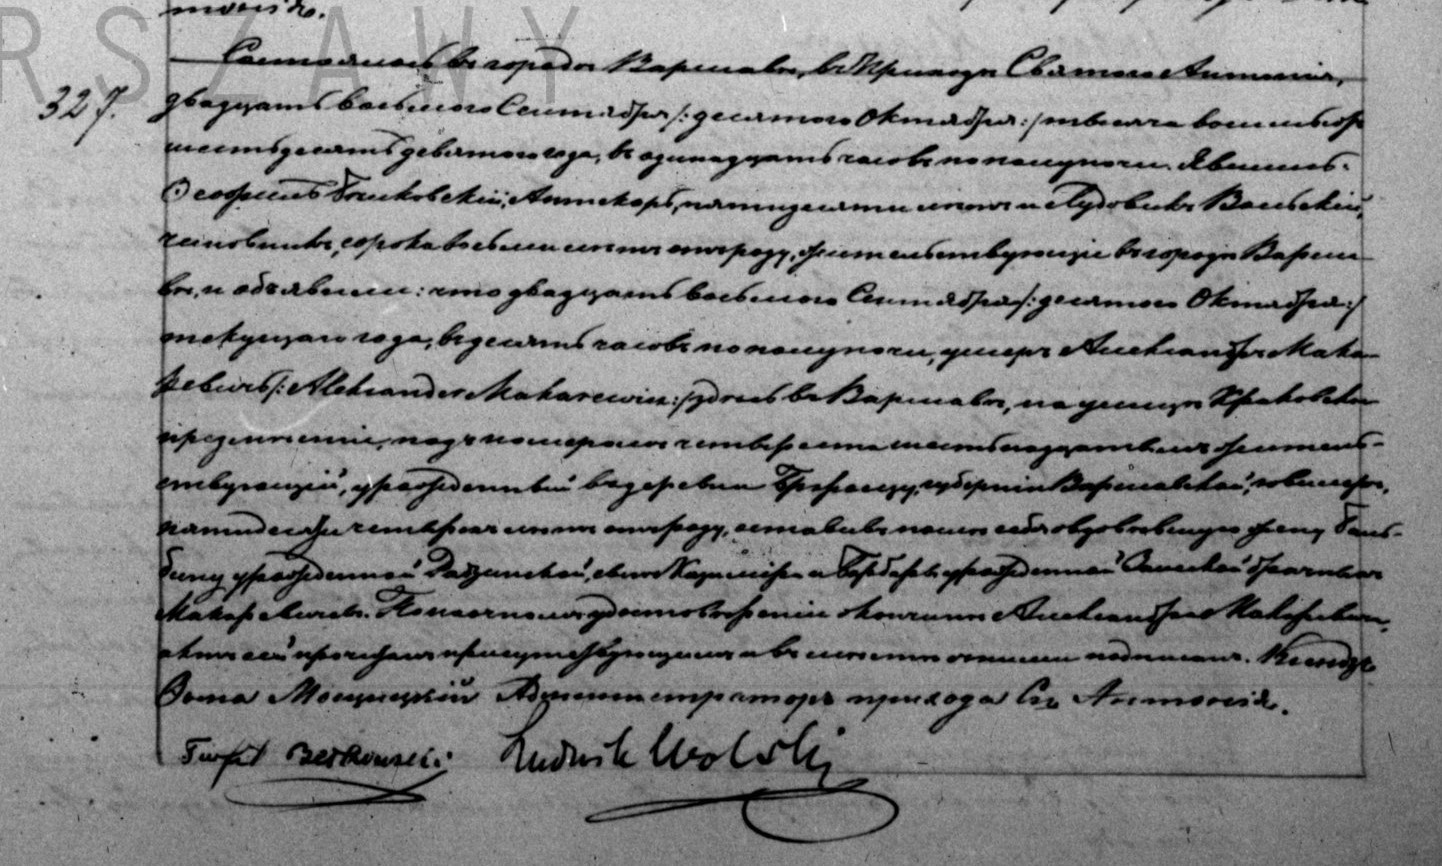 RSZAWY
моція.
327.
Состоялось въ городѣ Варшавѣ, въ Приходѣ Святого Антонія,
двадцать восьмого Сентября /:десятого Октября:/ тысяча восемьсотъ
шестьдесятъ девятого года, въ одинадцать часовъ по полуночи. Явились
Ѳеофилъ Аптекарь, пятидесяти лѣтъ и Лудовикъ Вольскій,
чиновникъ, сорока восьми лѣтъ отъ роду, жительствующіе въ городѣ Варша-
вѣ, и объявили: что двадцать восьмого Сентября /:десятого Октября:/
текущаго года, въ десять часовъ по полуночи, умеръ Александръ Мака-
ревичъ /:Aleksander Makarewicz:/ здѣсь въ Варшавѣ, на улицѣ Краковскомъ
предмѣстіи, подъ номеромъ четыреста шестьнадцатымъ житель-
ствующій, урожденный въ деревни губерніи Варшавской,
пятидесяти четырехъ лѣтъ отъ роду, оставивъ послѣ себя овдовѣвшую жену Баль-
бину урожденной сынъ Казимѣра и Барбары урожденной брачныхъ
Макаревичевъ. По настоячномъ удостовѣреніи о кончинѣ Александра Макаревича,
актъ сей прочтенъ присутствующимъ и въ мѣстѣ съ ними подписанъ. Ксендзъ
Ѳома Мощицкій Администраторъ прихода Св. Антонія.
Teofil Ludwik Wolski